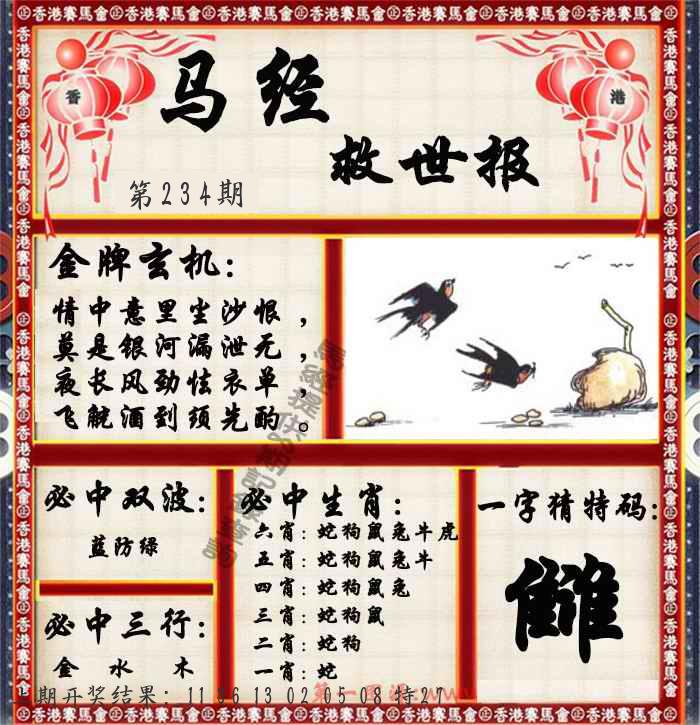 香港賽馬會
香
港
马经
救世报
第234期
金牌玄机：
情中意里尘沙恨，
莫是银河漏泄无，
夜长风劲怯衣单，
飞觥酒到须先酌。
必中双波：
蓝防绿
必中三行：
金 水 木
必中生肖：
六肖：蛇狗鼠兔牛虎
五肖：蛇狗鼠兔牛
四肖：蛇狗鼠兔
三肖：蛇狗鼠
二肖：蛇狗
一肖：蛇
一字猜特码：
雠
期开奖结果：11 36 13 02 05 08 特27